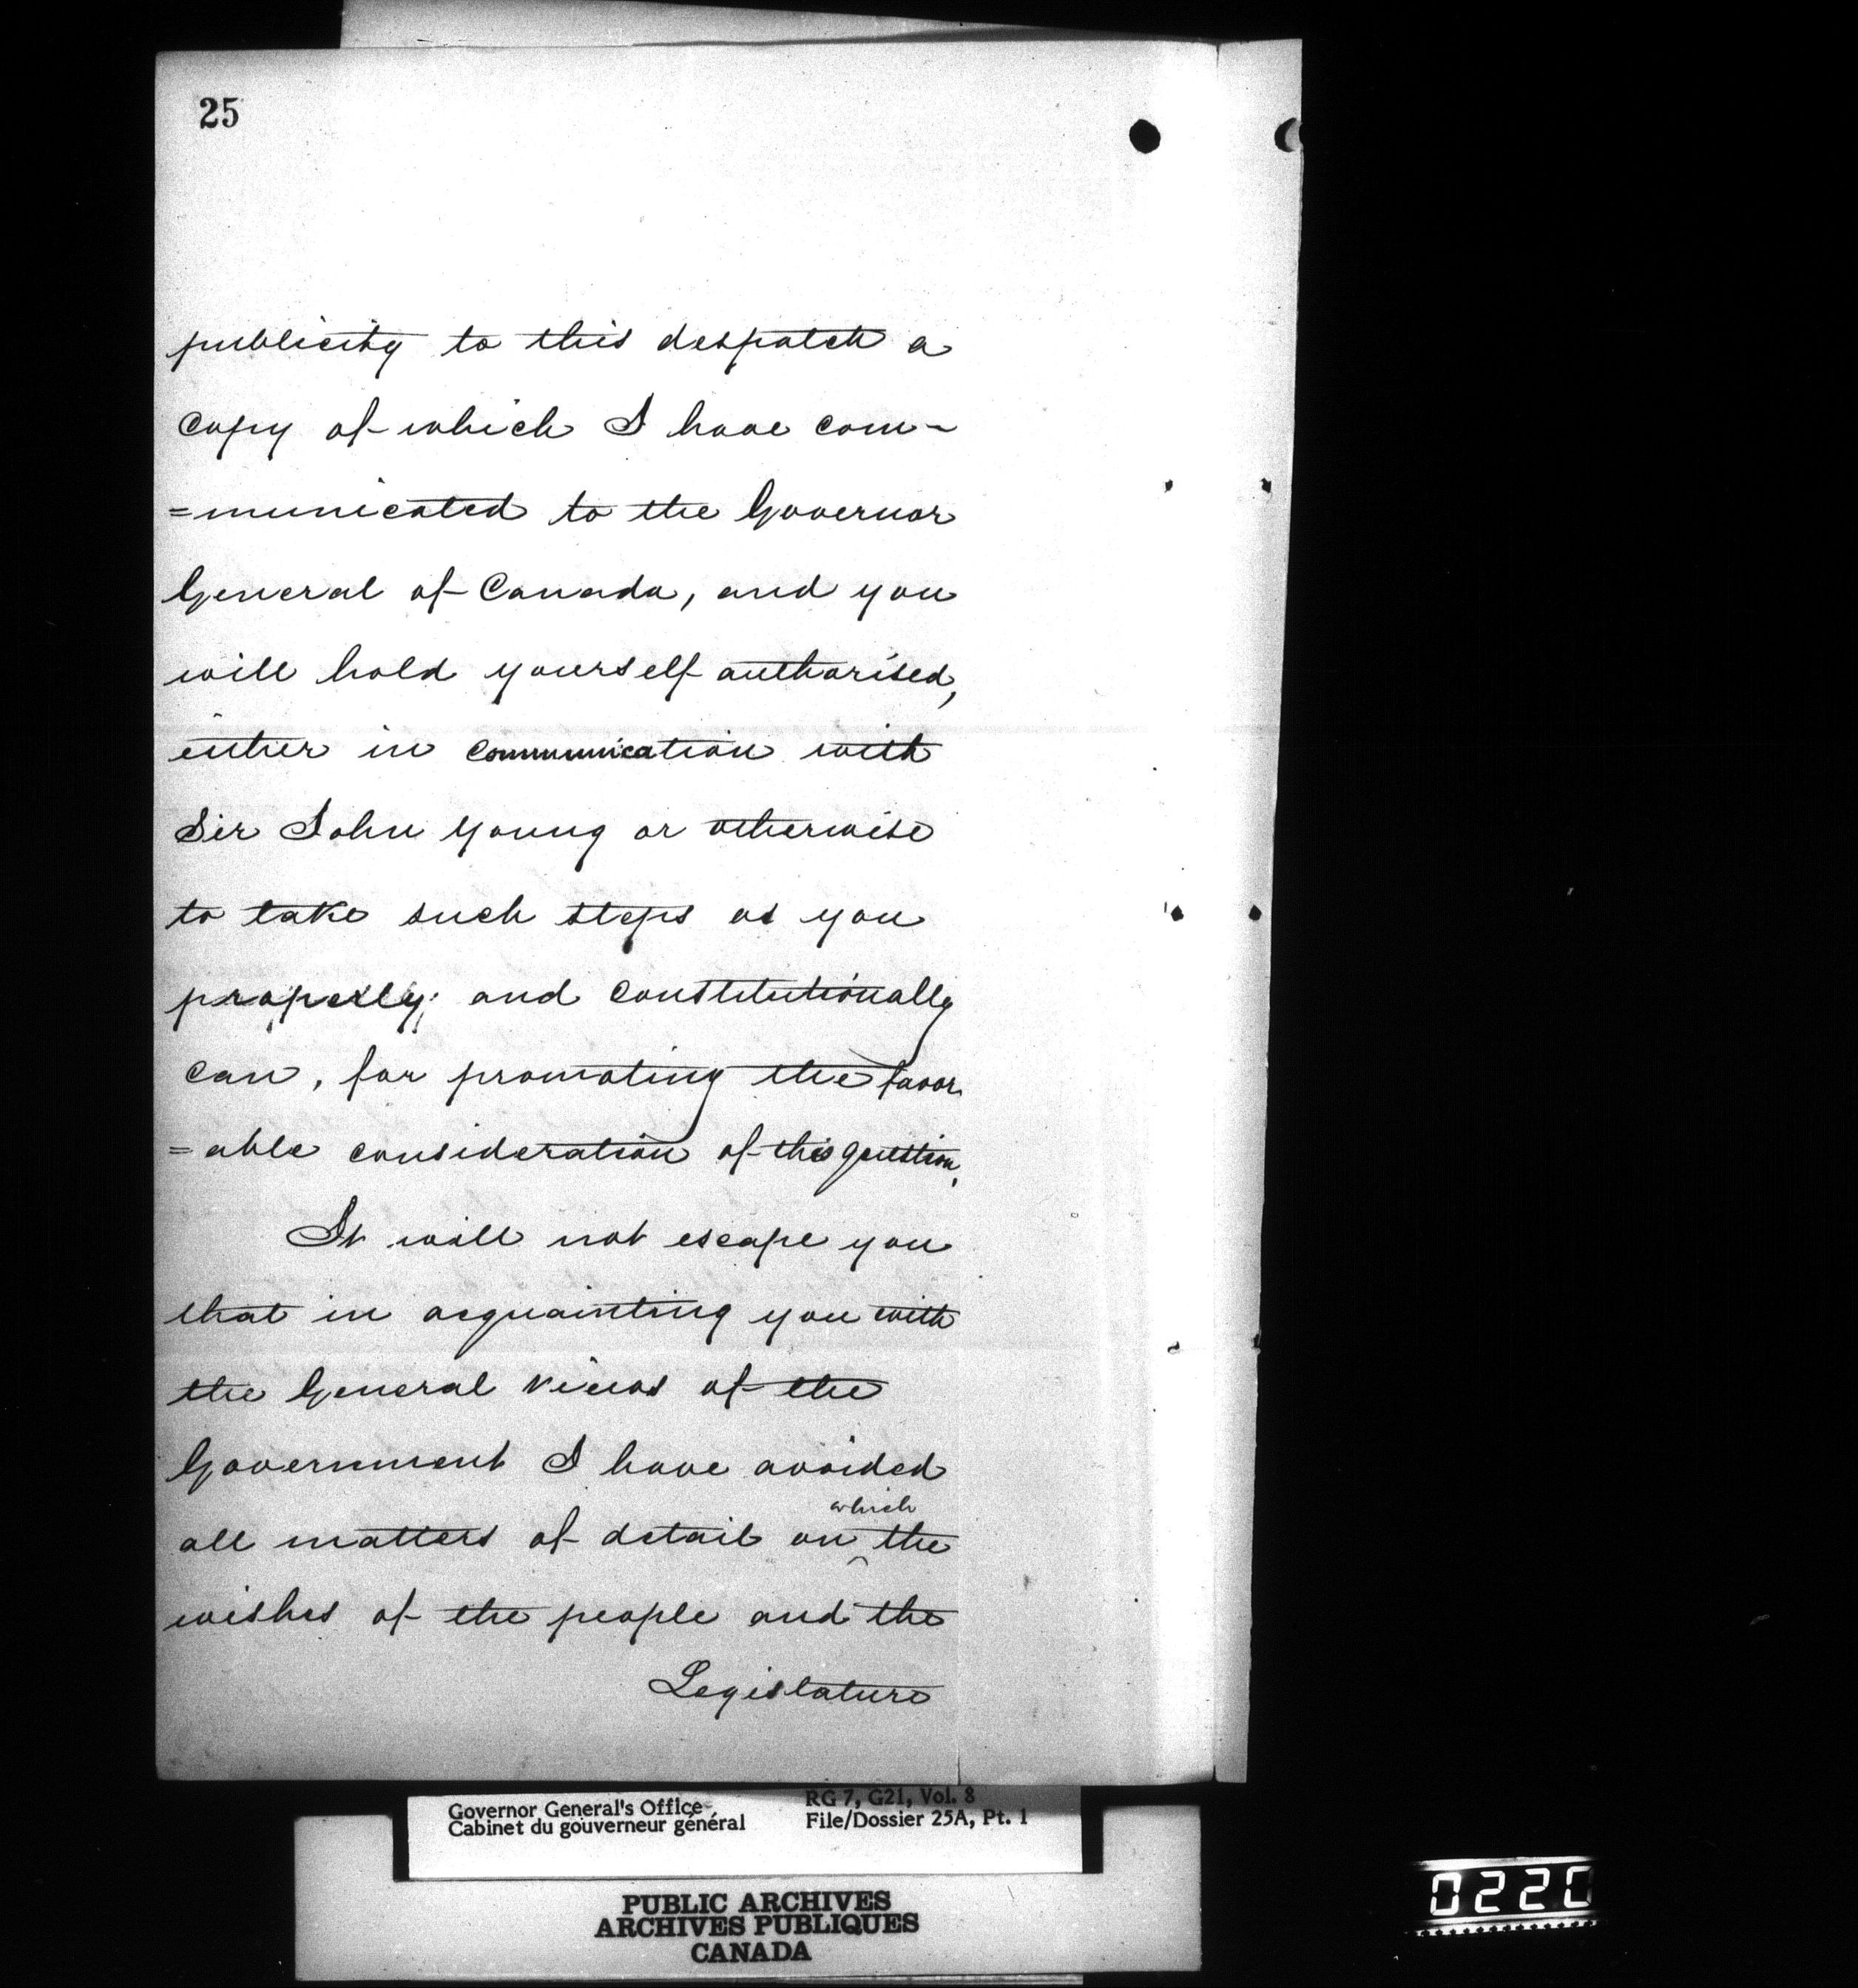 25
publicity to this despatch a
copy of which I have com-
=municated to the Governor
General of Canada, and you
will hold yourself authorised,
either in communication with
Sir John Young or otherwise
to take such steps as you
properly; and constitutionally
can, for promoting the favor
=able consideration of this question.
It will not escape you
that in acquainting you with
the General views of the
Government I have avoided
which
all matters of detail on ^ the
wishes of the people and the
Legislature
Governor General's Office
Cabinet du gouverneur général
RG 7, G21, Vol. 8
File/Dossier 25A, Pt. 1
PUBLIC ARCHIVES
ARCHIVES PUBLIQUES
CANADA
0220